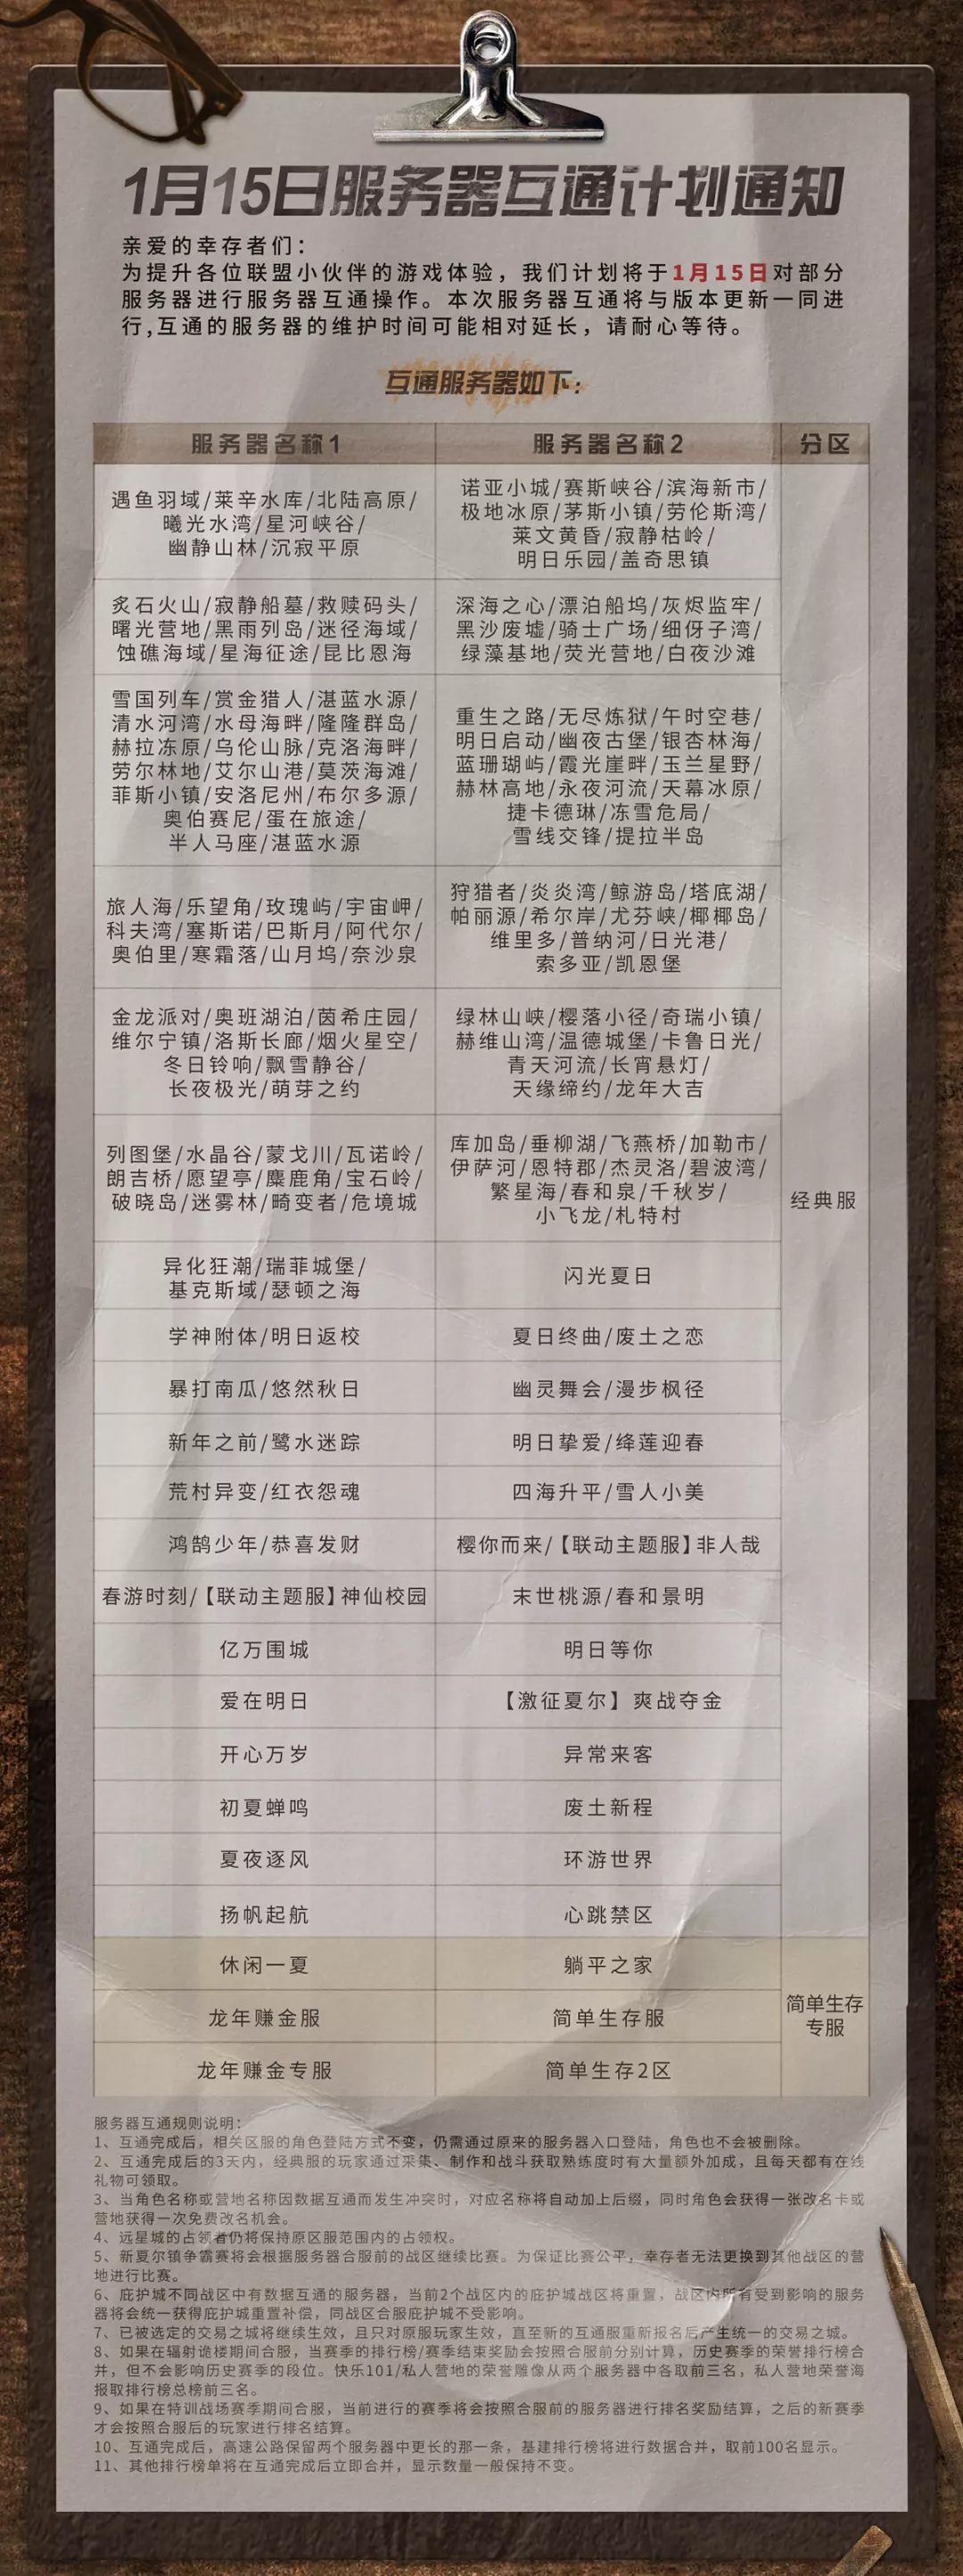 1月15日服务器互通计划通知
亲爱的幸存者们：
为提升各位联盟小伙伴的游戏体验，我们计划将于1月15日对部分
服务器进行服务器互通操作。本次服务器互通将与版本更新一同进
行,互通的服务器的维护时间可能相对延长，请耐心等待。
互通服务器如下：
服务器名称1 服务器名称2 分区
遇鱼羽域/莱辛水库/北陆高原/
曦光水湾/星河峡谷/
幽静山林/沉寂平原
诺亚小城/赛斯峡谷/滨海新市/
极地冰原/茅斯小镇/劳伦斯湾/
莱文黄昏/寂静枯岭/
明日乐园/盖奇思镇
炙石火山/寂静船墓/救赎码头/
曙光营地/黑雨列岛/迷径海域/
蚀礁海域/星海征途/昆比恩海
深海之心/漂泊船坞/灰烬监牢/
黑沙废墟/骑士广场/细伢子湾/
绿藻基地/荧光营地/白夜沙滩
雪国列车/赏金猎人/湛蓝水源/
清水河湾/水母海畔/隆隆群岛/
赫拉冻原/乌伦山脉/克洛海畔/
劳尔林地/艾尔山港/莫茨海滩/
菲斯小镇/安洛尼州/布尔多源/
奥伯赛尼/蛋在旅途/
半人马座/湛蓝水源
重生之路/无尽炼狱/午时空巷/
明日启动/幽夜古堡/银杏林海/
蓝珊瑚屿/霞光崖畔/玉兰星野/
赫林高地/永夜河流/天幕冰原/
捷卡德琳/冻雪危局/
雪线交锋/提拉半岛
旅人海/乐望角/玫瑰屿/宇宙岬/
科夫湾/塞斯诺/巴斯月/阿代尔/
奥伯里/寒霜落/山月坞/奈沙泉
狩猎者/炎炎湾/鲸游岛/塔底湖/
帕丽源/希尔岸/尤芬峡/椰椰岛/
维里多/普纳河/日光港/
索多亚/凯恩堡
金龙派对/奥班湖泊/茵希庄园/
维尔宁镇/洛斯长廊/烟火星空/
冬日铃响/飘雪静谷/
长夜极光/萌芽之约
绿林山峡/樱落小径/奇瑞小镇/
赫维山湾/温德城堡/卡鲁日光/
青天河流/长宵悬灯/
天缘缔约/龙年大吉
列图堡/水晶谷/蒙戈川/瓦诺岭/
朗吉桥/愿望亭/麋鹿角/宝石岭/
破晓岛/迷雾林/畸变者/危境城
库加岛/垂柳湖/飞燕桥/加勒市/
伊萨河/恩特郡/杰灵洛/碧波湾/
繁星海/春和泉/千秋岁/
小飞龙/札特村
经典服
异化狂潮/瑞菲城堡/
基克斯域/瑟顿之海
闪光夏日
学神附体/明日返校 夏日终曲/废土之恋
暴打南瓜/悠然秋日 幽灵舞会/漫步枫径
新年之前/鹭水迷踪 明日挚爱/绛莲迎春
荒村异变/红衣怨魂 四海升平/雪人小美
鸿鹄少年/恭喜发财 樱你而来/【联动主题服】非人哉
春游时刻/【联动主题服】神仙校园 末世桃源/春和景明
亿万围城 明日等你
爱在明日 【激征夏尔】爽战夺金
开心万岁 异常来客
初夏蝉鸣 废土新程
夏夜逐风 环游世界
扬帆起航 心跳禁区
休闲一夏 躺平之家
龙年赚金服 简单生存服
简单生存
专服
龙年赚金专服 简单生存2区
服务器互通规则说明：
1、互通完成后，相关区服的角色登陆方式不变，仍需通过原来的服务器入口登陆，角色也不会被删除。
2、互通完成后的3天内，经典服的玩家通过采集、制作和战斗获取熟练度时有大量额外加成，且每天都有在线
礼物可领取。
3、当角色名称或营地名称因数据互通而发生冲突时，对应名称将自动加上后缀，同时角色会获得一张改名卡或
营地获得一次免费改名机会。
4、远星城的占领者仍将保持原区服范围内的占领权。
5、新夏尔镇争霸赛将会根据服务器合服前的战区继续比赛。为保证比赛公平，幸存者无法更换到其他战区的营
地进行比赛。
6、庇护城不同战区中有数据互通的服务器，当前2个战区内的庇护城战区将重置，战区内所有受到影响的服务
器将会统一获得庇护城重置补偿，同战区合服庇护城不受影响。
7、已被选定的交易之城将继续生效，且只对原服玩家生效，直至新的互通服重新报名后产生统一的交易之城。
8、如果在辐射诡楼期间合服，当赛季的排行榜/赛季结束奖励会按照合服前分别计算，历史赛季的荣誉排行榜合
并，但不会影响历史赛季的段位。快乐101/私人营地的荣誉雕像从两个服务器中各取前三名，私人营地荣誉海
报取排行榜总榜前三名。
9、如果在特训战场赛季期间合服，当前进行的赛季将会按照合服前的服务器进行排名奖励结算，之后的新赛季
才会按照合服后的玩家进行排名结算。
10、互通完成后，高速公路保留两个服务器中更长的那一条，基建排行榜将进行数据合并，取前100名显示。
11、其他排行榜单将在互通完成后立即合并，显示数量一般保持不变。